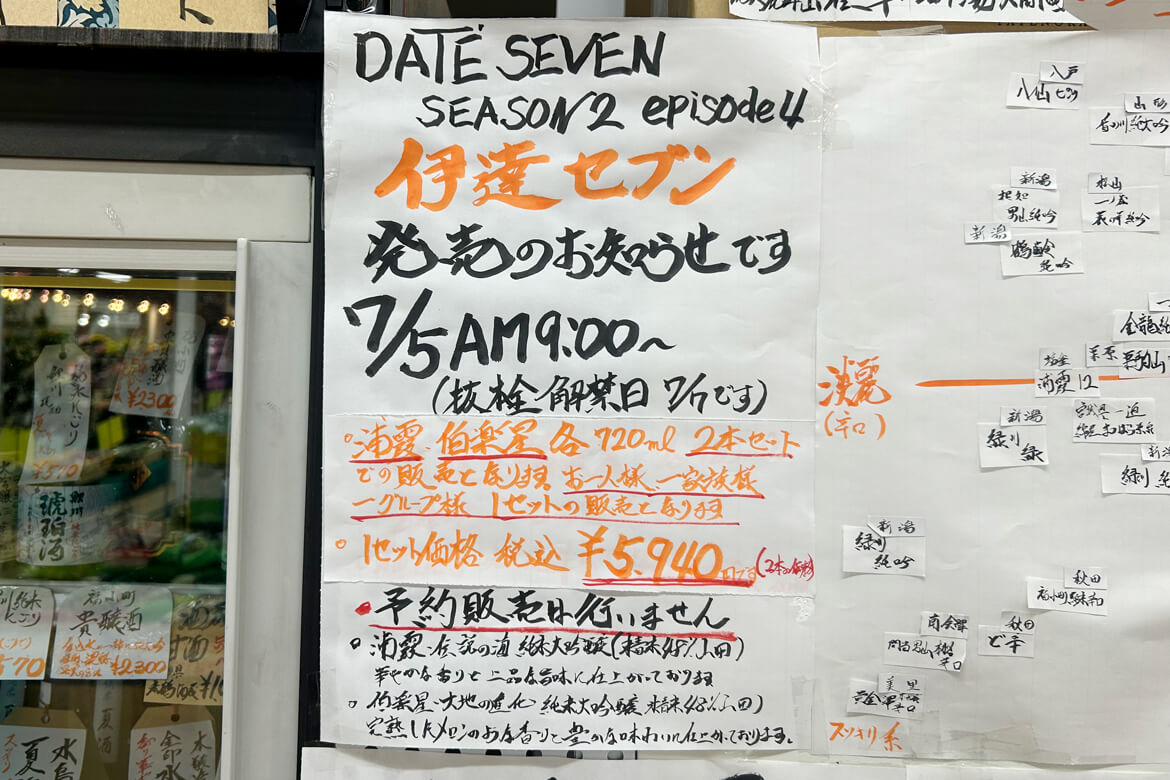 DATE SEVEN
SEASON2 episode4
伊達セブン
発売のお知らせです
7/5 AM9:00~
(抜栓解禁日 7/7です)
○浦霞、伯楽星 各720ml 2本セット
での販売となります お一人様、一家族様
一グループ様 1セットの販売となります
○1セット価格 税込 ¥5.940円です(2本の価格)
●予約販売は行いません
○浦霞・伝説の酒 純米大吟醸(精米48%山田)
華やかな香りと上品な旨味に仕上がっております
○伯楽星・大地の進化 純米大吟醸 精米48%山田)
完熟したメロンのような香りと豊かな味わいに仕上がっております。
八戸
八仙ピンク
新潟
男山純吟
新潟
鶴齢
純吟
淡麗
(辛口)
塩釜
浦霞12
栗原
新潟
緑川
緑
新潟
緑川
純吟
秋田
秋田
ど辛
美里
スッキリ系
¥2300
¥570
琥珀酒
貴醸酒
¥2,300
夏酒